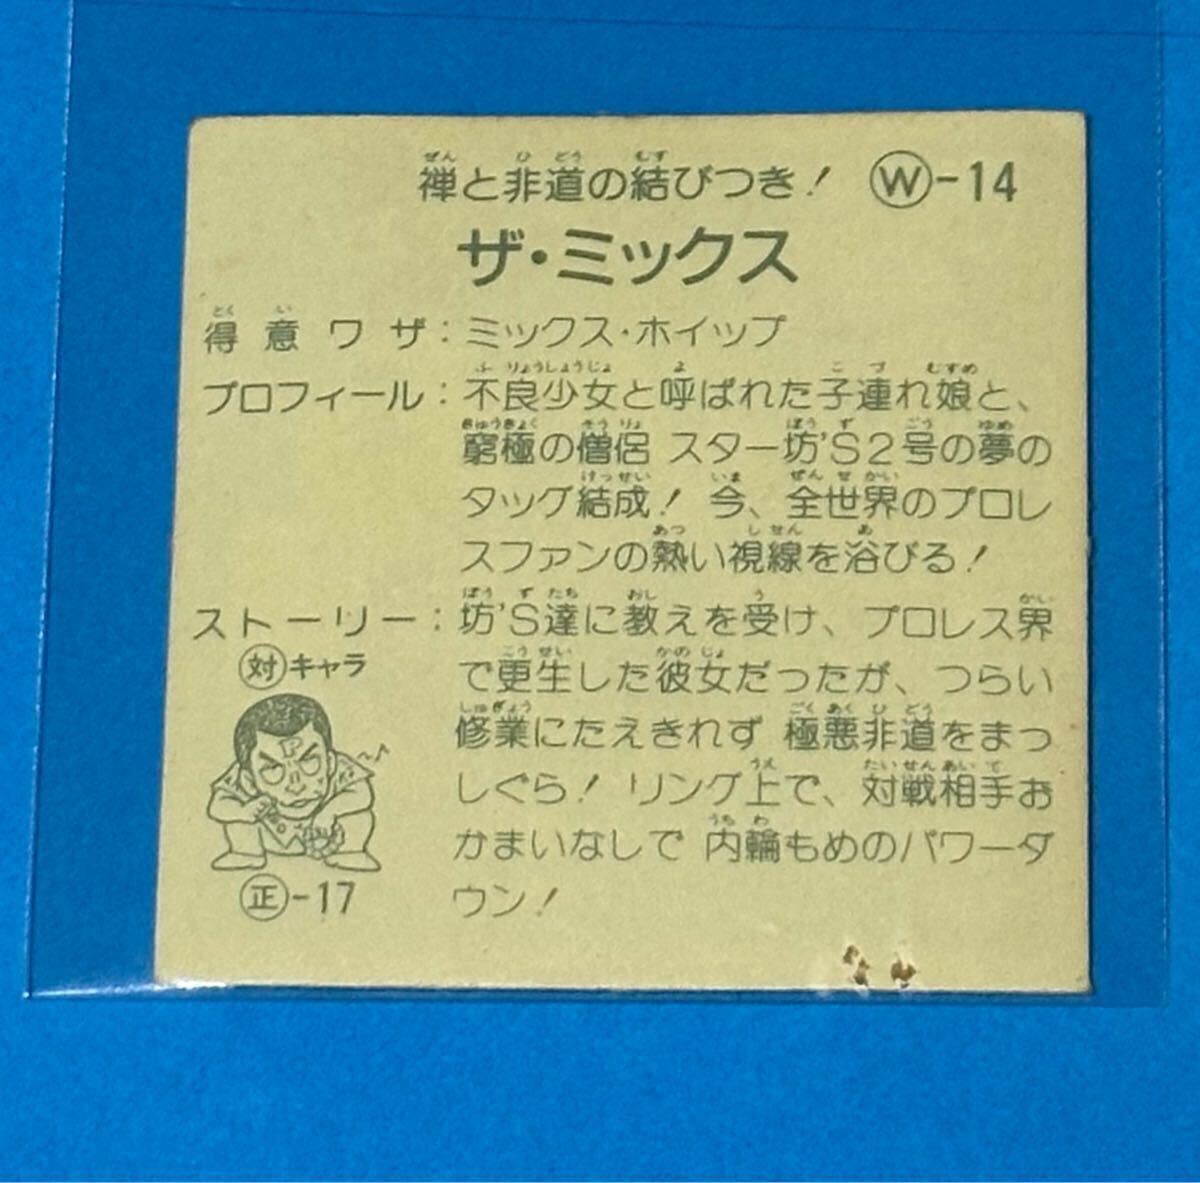 禅と非道の結びつき! Ⓦ-14
ザ・ミックス
得意ワザ:ミックス・ホイップ
プロフィール:不良少女と呼ばれた子連れ娘と、
窮極の僧侶 スター坊'S2号の夢の
タッグ結成! 今、全世界のプロレ
スファンの熱い視線を浴びる!
ストーリー:坊'S達に教えを受け、プロレス界
で更生した彼女だったが、つらい
修業にたえきれず 極悪非道をまっ
しぐら! リング上で、対戦相手お
かまいなしで 内輪もめのパワーダ
ウン!
㊟キャラ
P
㊣-17